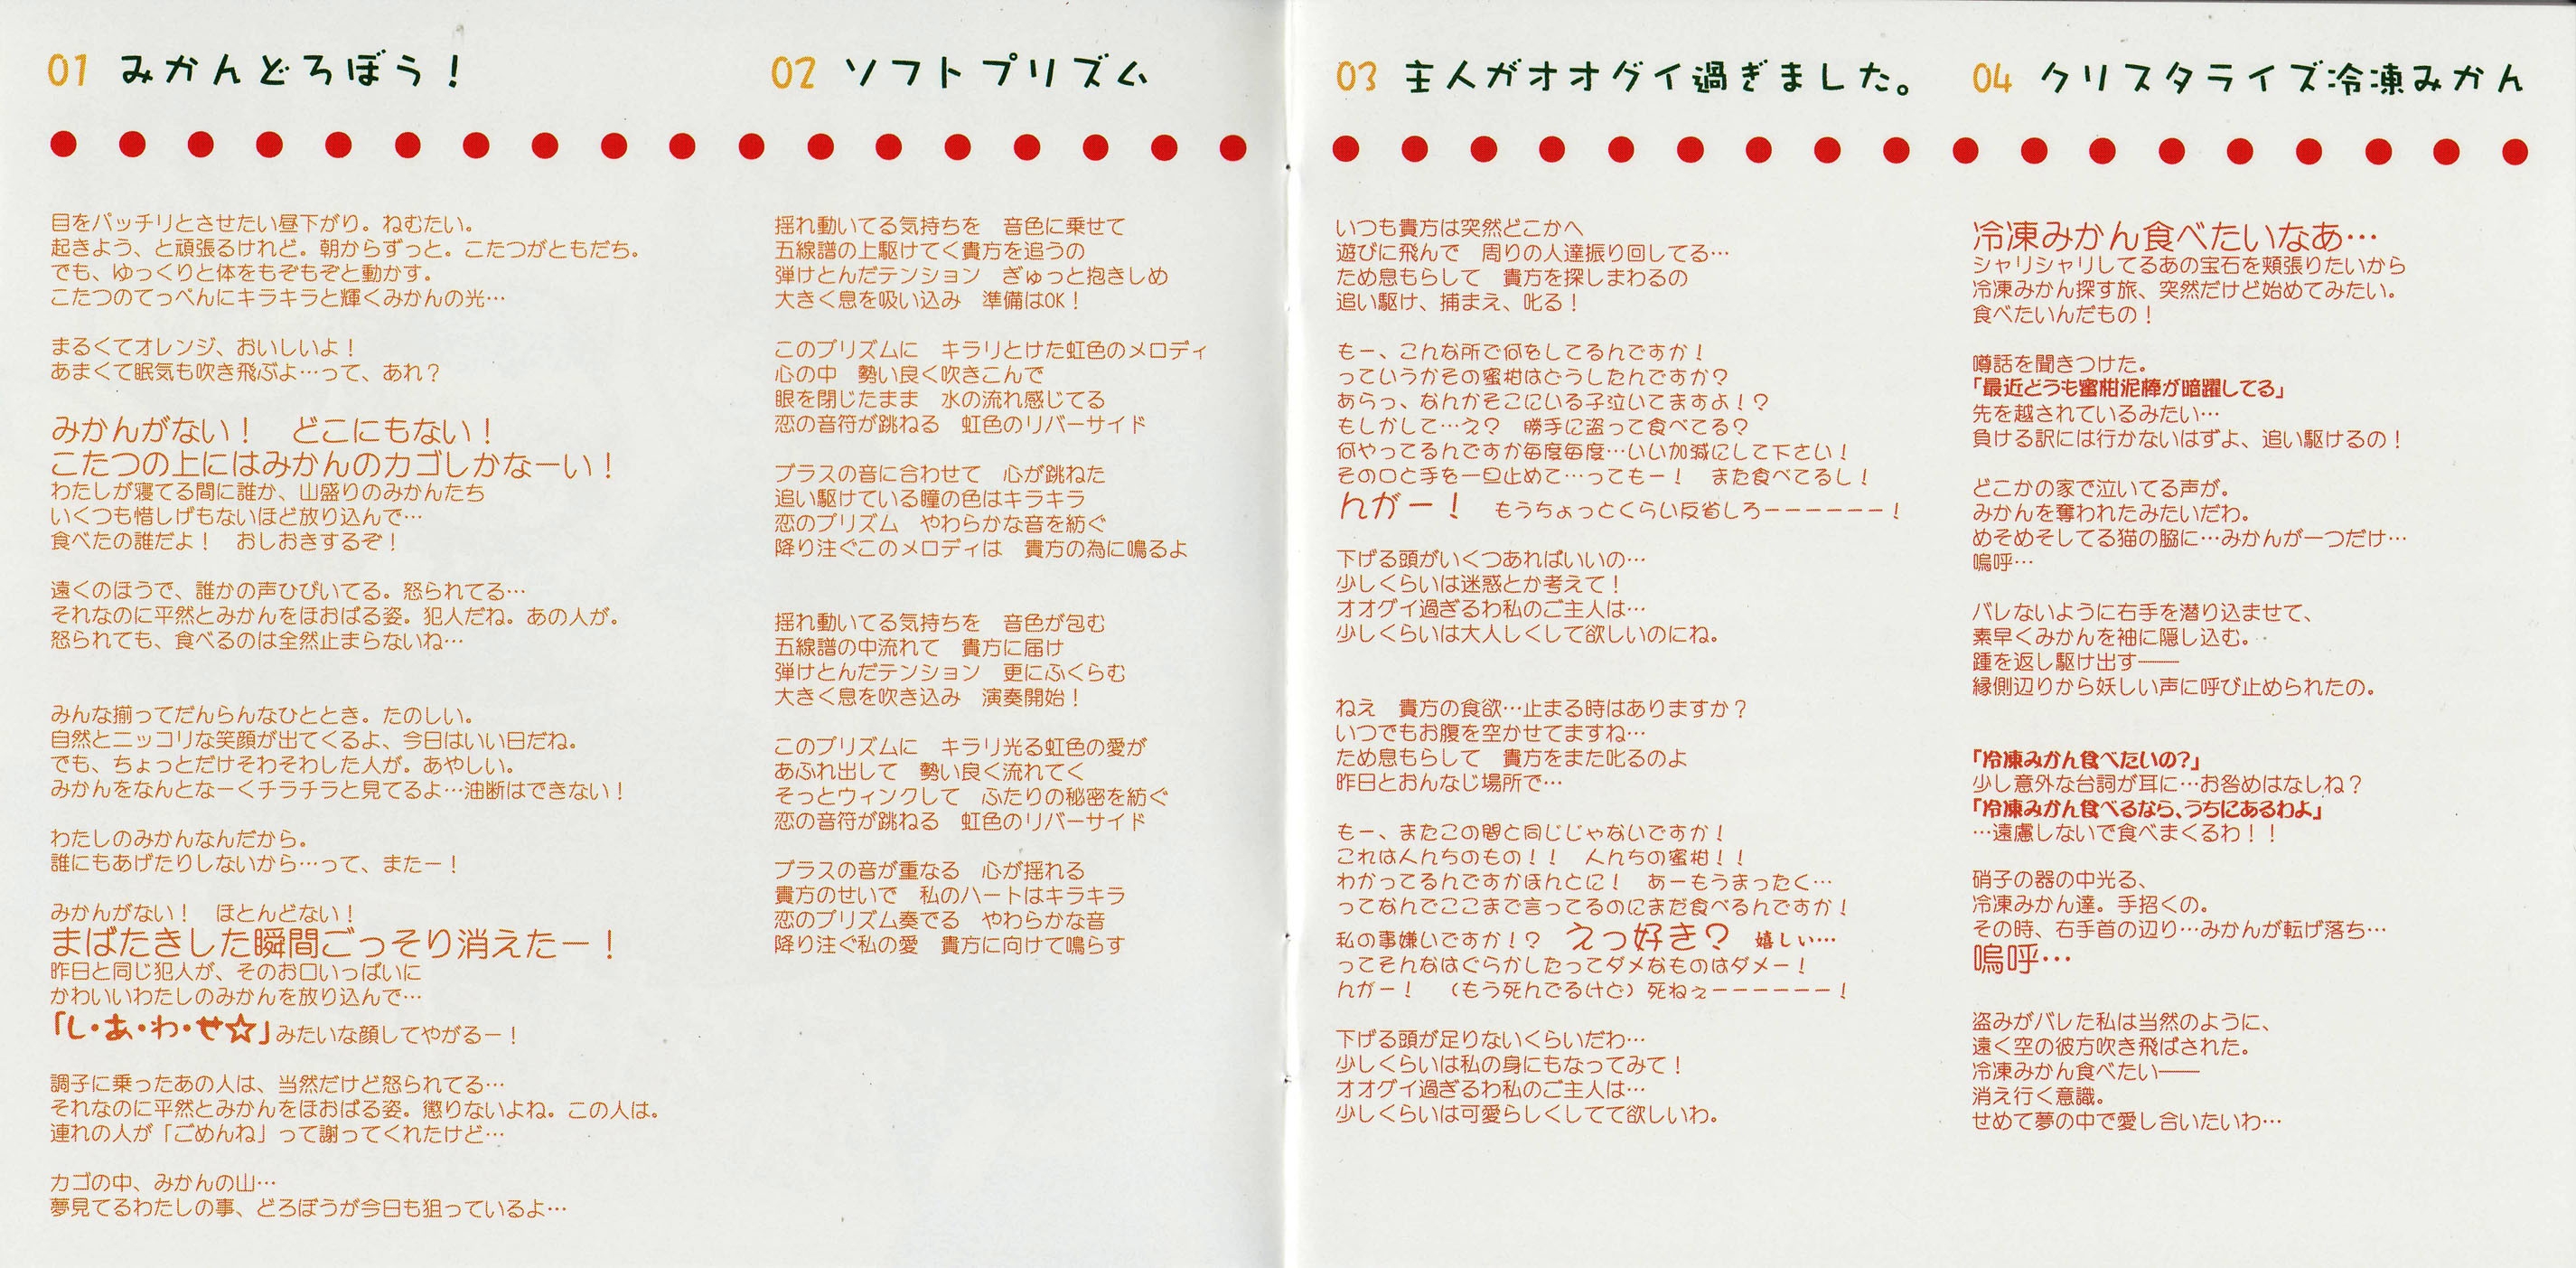 01 みかんどろぼう！
目をパッチリとさせたい昼下がり。ねむたい。
起きよう、と頑張るけれど。朝からずっと。こたつがともだち。
でも、ゆっくりと体をもぞもぞと動かす。
こたつのてっぺんにキラキラと輝くみかんの光…
まるくてオレンジ、おいしいよ！
あまくて眠気も吹き飛ぶよ…って、あれ？
みかんがない！　どこにもない！
こたつの上にはみかんのカゴしかなーい！
わたしが寝てる間に誰か、山盛りのみかんたち
いくつも惜しげもないほど放り込んで…
食べたの誰だよ！　おしおきするぞ！
遠くのほうで、誰かの声ひびいてる。怒られてる…
それなのに平然とみかんをほおばる姿。犯人だね。あの人が。
怒られても、食べるのは全然止まらないね…
みんな揃ってだんらんなひととき。たのしい。
自然とニッコリな笑顔が出てくるよ、今日はいい日だね。
でも、ちょっとだけそわそわした人が。あやしい。
みかんをなんとなーくチラチラと見てるよ…油断はできない！
わたしのみかんなんだから。
誰にもあげたりしないから…って、またー！
みかんがない！　ほとんどない！
まばたきした瞬間ごっそり消えたー！
昨日と同じ犯人が、そのお口いっぱいに
かわいいわたしのみかんを放り込んで…
「し・あ・わ・せ☆」みたいな顔してやがるー！
調子に乗ったあの人は、当然だけど怒られてる…
それなのに平然とみかんをほおばる姿。懲りないよね。この人は。
連れの人が「ごめんね」って謝ってくれたけど…
カゴの中、みかんの山…
夢見てるわたしの事、どろぼうが今日も狙っているよ…
02 ソフトプリズム
揺れ動いてる気持ちを　音色に乗せて
五線譜の上駆けてく貴方を追うの
弾けとんだテンション　ぎゅっと抱きしめ
大きく息を吸い込み　準備はOK！
このプリズムに　キラリとけた虹色のメロディ
心の中　勢い良く吹きこんで
眼を閉じたまま　水の流れ感じてる
恋の音符が跳ねる　虹色のリバーサイド
ブラスの音に合わせて　心が跳ねた
追い駆けている瞳の色はキラキラ
恋のプリズム　やわらかな音を紡ぐ
降り注ぐこのメロディは　貴方の為に鳴るよ
揺れ動いてる気持ちを　音色が包む
五線譜の中流れて　貴方に届け
弾けとんだテンション　更にふくらむ
大きく息を吹き込み　演奏開始！
このプリズムに　キラリ光る虹色の愛が
あふれ出して　勢い良く流れてく
そっとウィンクして　ふたりの秘密を紡ぐ
恋の音符が跳ねる　虹色のリバーサイド
ブラスの音が重なる　心が揺れる
貴方のせいで　私のハートはキラキラ
恋のプリズム奏でる　やわらかな音
降り注ぐ私の愛　貴方に向けて鳴らす
03 主人がオオグイ過ぎました。
いつも貴方は突然どこかへ
遊びに飛んで　周りの人達振り回してる…
ため息もらして　貴方を探しまわるの
追い駆け、捕まえ、叱る！
もー、こんな所で何をしてるんですか！
っていうかその蜜柑はどうしたんですか？
あらっ、なんかそこにいる子泣いてますよ！？
もしかして…え？　勝手に盗って食べてる？
何やってるんですか毎度毎度…いい加減にして下さい！
その口と手を一旦止めて…ってもー！　また食べてるし！
んがー！　もうちょっとくらい反省しろーーーーーー！
下げる頭がいくつあればいいの…
少しくらいは迷惑とか考えて！
オオグイ過ぎるわ私のご主人は…
少しくらいは大人しくして欲しいのにね。
ねえ　貴方の食欲…止まる時はありますか？
いつでもお腹を空かせてますね…
ため息もらして　貴方をまた叱るのよ
昨日とおんなじ場所で…
もー、またこの間と同じじゃないですか！
これは人んちのもの！！　人んちの蜜柑！！
わかってるんですかほんとに！　あーもうまったく…
ってなんでここまで言ってるのにまだ食べるんですか！
私の事嫌いですか！？　えっ好き？　嬉しい…
ってそんなはぐらかしたってダメなものはダメー！
んがー！　（もう死んでるけど）死ねぇーーーーーー！
下げる頭が足りないくらいだわ…
少しくらいは私の身にもなってみて！
オオグイ過ぎるわ私のご主人は…
少しくらいは可愛らしくしてて欲しいわ。
04 クリスタライズ冷凍みかん
冷凍みかん食べたいなあ…
シャリシャリしてるあの宝石を頬張りたいから
冷凍みかん探す旅、突然だけど始めてみたい。
食べたいんだもの！
噂話を聞きつけた。
「最近どうも蜜柑泥棒が暗躍してる」
先を越されているみたい…
負ける訳には行かないはずよ、追い駆けるの！
どこかの家で泣いてる声が。
みかんを奪われたみたいだわ。
めそめそしてる猫の脇に…みかんが一つだけ…
嗚呼…
バレないように右手を潜り込ませて、
素早くみかんを袖に隠し込む。
踵を返し駆け出す――
縁側辺りから妖しい声に呼び止められたの。
「冷凍みかん食べたいの？」
少し意外な台詞が耳に…お咎めはなしね？
「冷凍みかん食べるなら、うちにあるわよ」
…遠慮しないで食べまくるわ！！
硝子の器の中光る、
冷凍みかん達。手招くの。
その時、右手首の辺り…みかんが転げ落ち…
嗚呼…
盗みがバレた私は当然のように、
遠く空の彼方吹き飛ばされた。
冷凍みかん食べたい――
消え行く意識。
せめて夢の中で愛し合いたいわ…